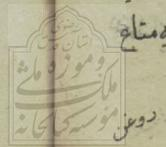 متاع
رضوی
آستان قدس
و موزه ملی
ملک
مؤسسه کتابخانه
روغن